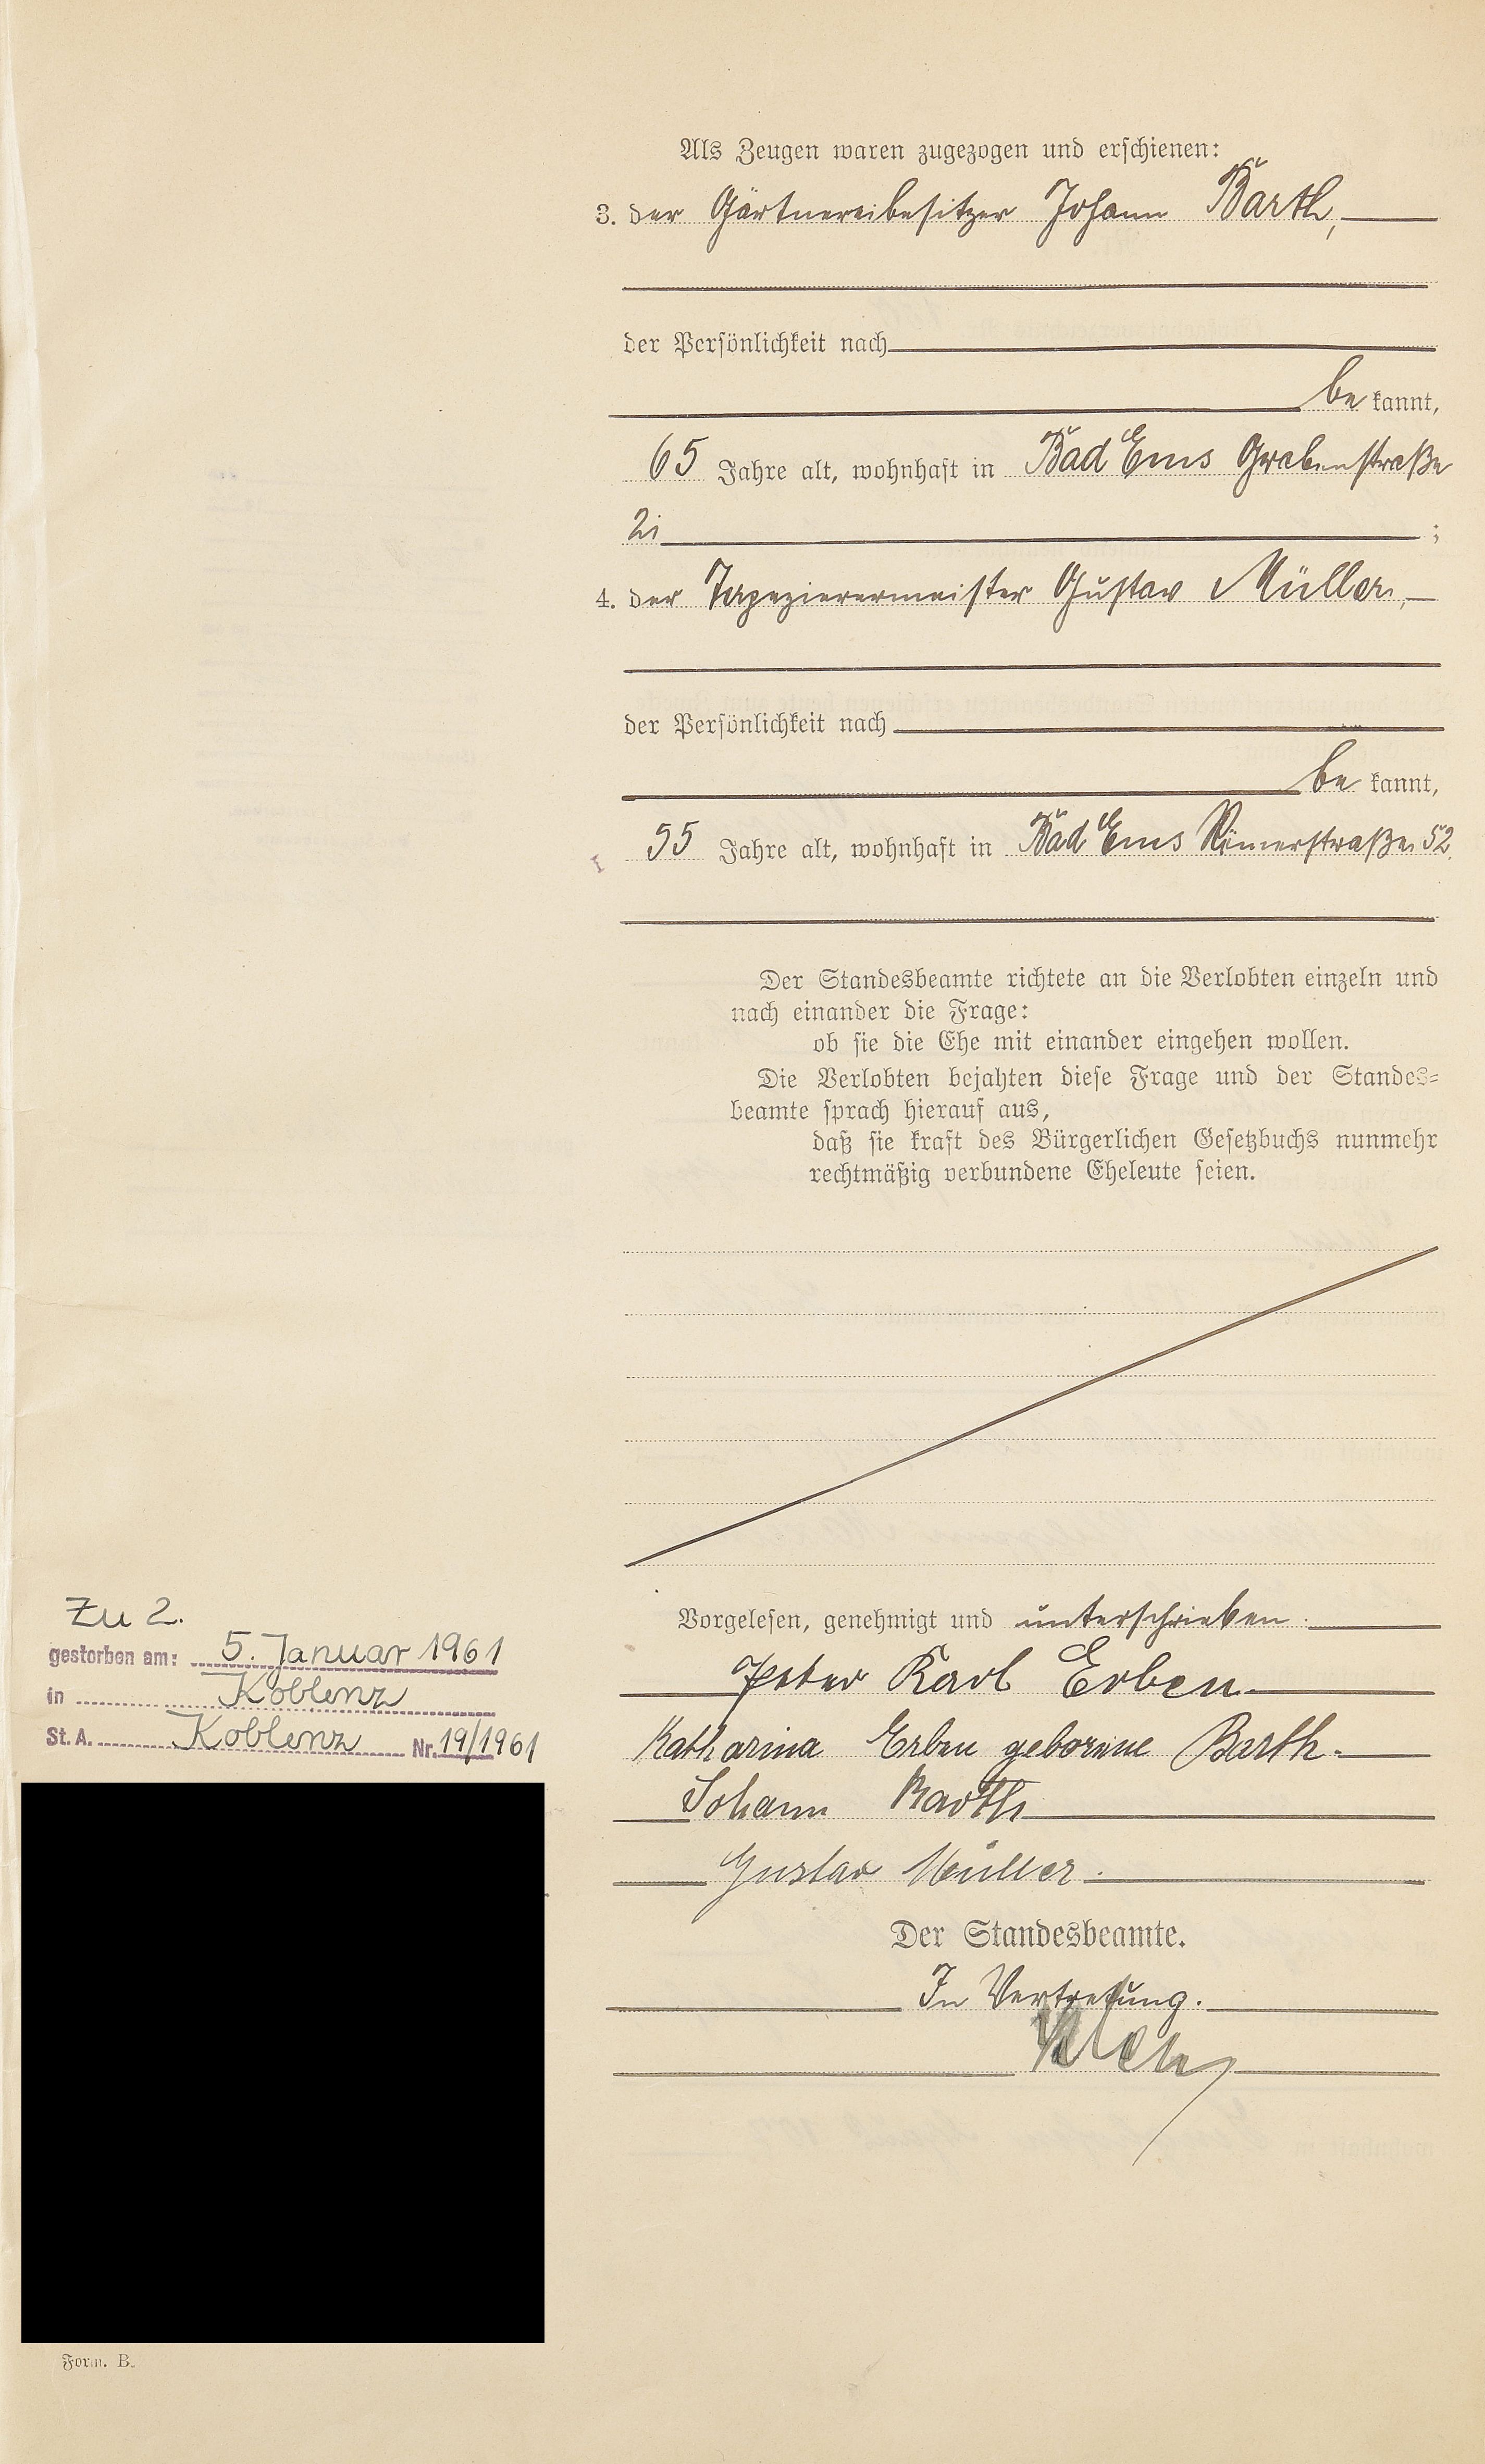 Als Zeugen waren zugezogen und erschienen:
3. der Gärtnereibesitzer Johann Barth,
der Persönlichkeit nach
be kannt,
65 Jahre alt, wohnhaft in Bad Ems Grabenstraße
;
4. der Tapezierermeister Gustav Müller,
der Persönlichkeit nach
be kannt,
55 Jahre alt, wohnhaft in Bad Ems Römerstraße 52.
Der Standesbeamte richtete an die Verlobten einzeln und
nach einander die Frage:
ob sie die Ehe mit einander eingehen wollen.
Die Verlobten bejahten diese Frage und der Standes=
beamte sprach hierauf aus,
daß sie kraft des Bürgerlichen Gesetzbuchs nunmehr
rechtmäßig verbundene Eheleute seien.
Vorgelesen, genehmigt und unterschrieben.
Peter Karl Erben
Katharina Erben geborene Barth.
Johann Barth
Gustav Müller.
Der Standesbeamte.
In Vertretung.
Zu 2.
gestorben am: 5. Januar 1961
in Koblenz
St. A. Koblenz Nr. 19/1961
Form. B.